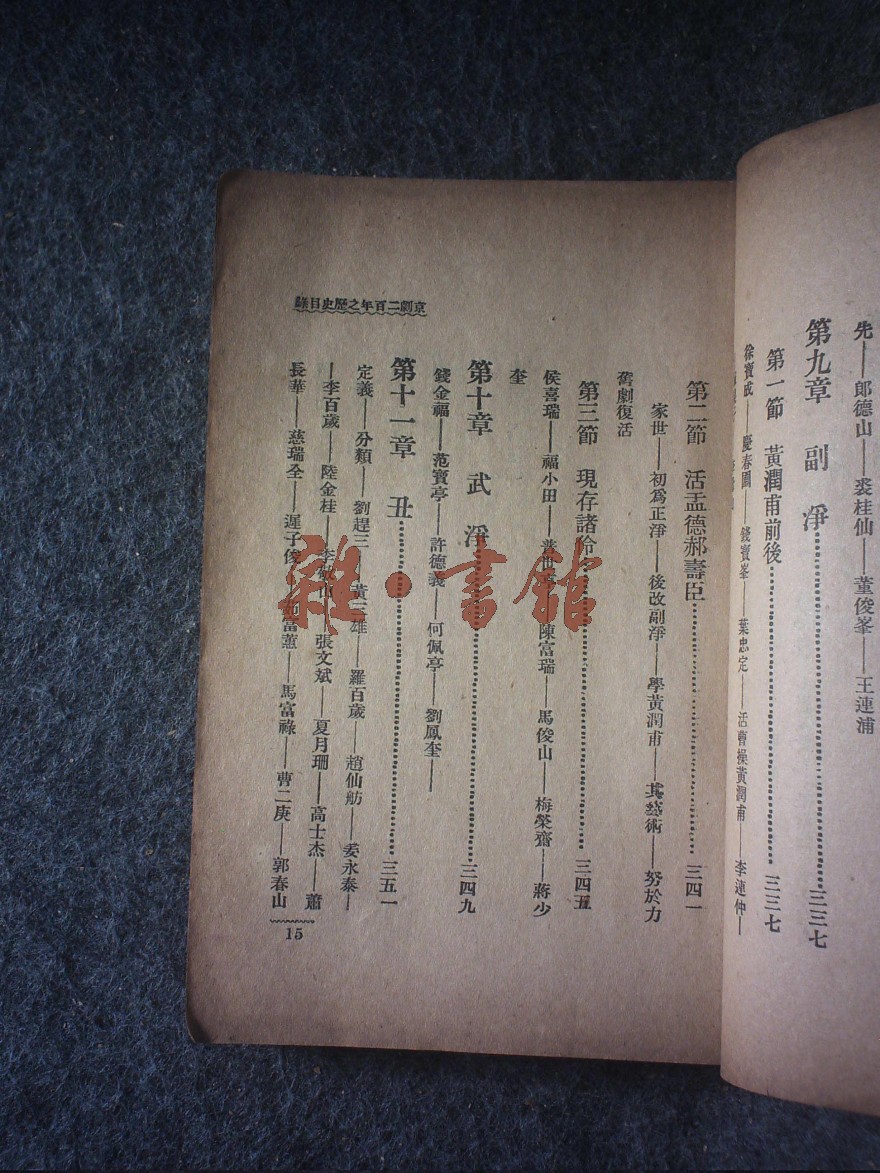 先——郎德山——裘桂仙——董俊峯——王連浦
第九章 副淨…………三三七
第一節 黃潤甫前後…………三三七
徐寶成——慶春圃——錢寶峯——葉忠定——活曹操黃潤甫 李連仲——
第二節 活孟德郝壽臣…………三四一
家世——初爲正淨——後改副淨——學黃潤甫——其藝術——努於力
舊劇復活
第三節 現存諸伶…………三四五
侯喜瑞——福小田——陳富瑞——馬俊山——梅榮齋——蔣少
奎
第十章 武淨…………三四九
錢金福——范寶亭——許德義——何佩亭——劉鳳奎——
第十一章 丑…………三五一
定義——分類——劉趕三——黃三雄——羅百歲——趙仙舫——姜永泰——
——李百歲——陸金桂——李敬山——張文斌——夏月珊——高士杰——蕭
長華——慈瑞全——遲子俊——茹富蕙——馬富祿——曹二庚——郭春山
京劇二百年之歷史目錄
15
雜·書館